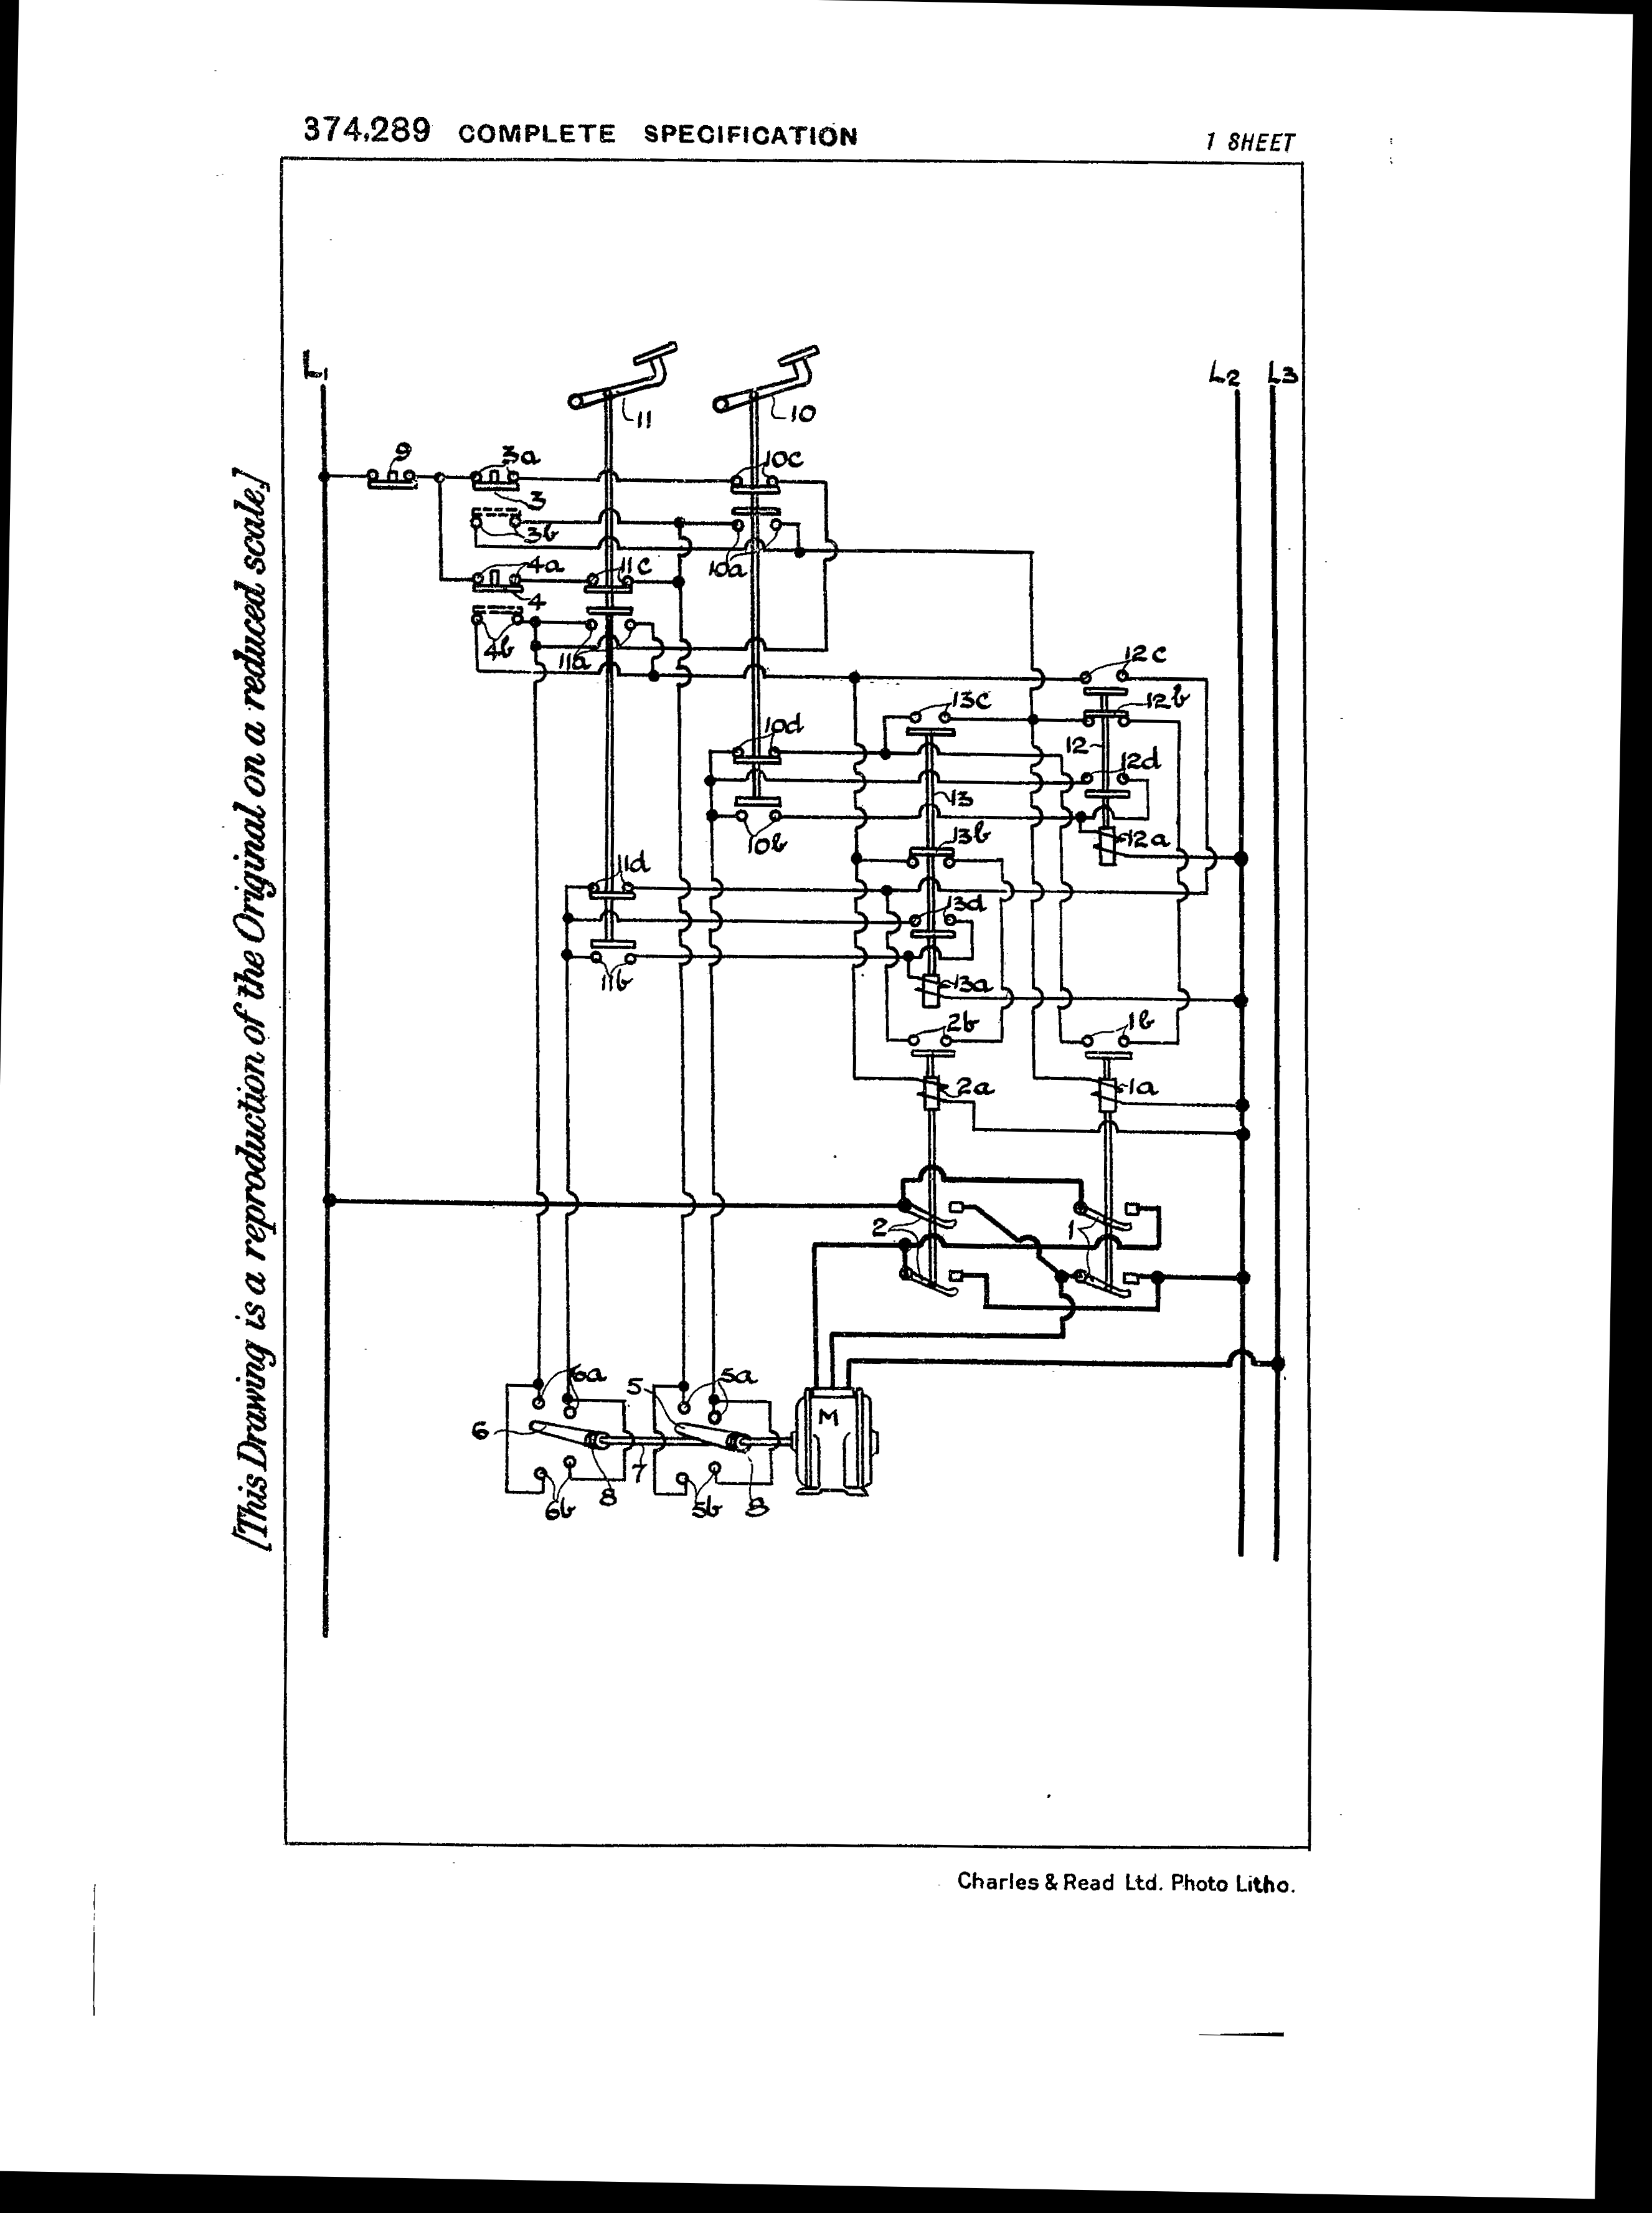 374,289 COMPLETE SPECIFICATION
1 SHEET
[This Drawing is a reproduction of the Original on a reduced scale.]
L1
L2
L3
11
10
9
3a
10c
3
3b
10a
4a
11c
4
4b
11a
12c
13c
12b
10d
12
12d
13
10b
13b
12a
11d
13d
11b
13a
2b
1b
2a
1a
2
1
6a
5
5a
6
M
7
8
8
6b
5b
Charles & Read Ltd. Photo Litho.